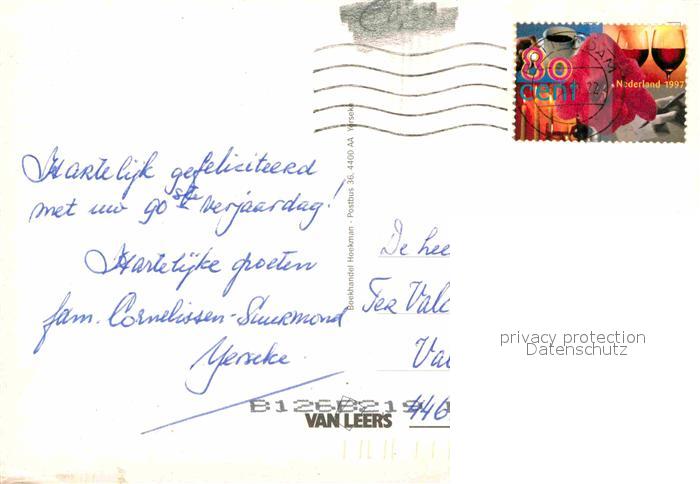 80
cent
Nederland 1997
Hartelijk gefeliciteerd
met uw 90ste verjaardag!
Hartelijke groeten
fam. Cornelissen-Suurmond
Yerseke
Boekhandel Hoekman - Postbus 36, 4400 AA Yerseke
De hee
Ter Valc
446
privacy protection
Datenschutz
VAN LEERS